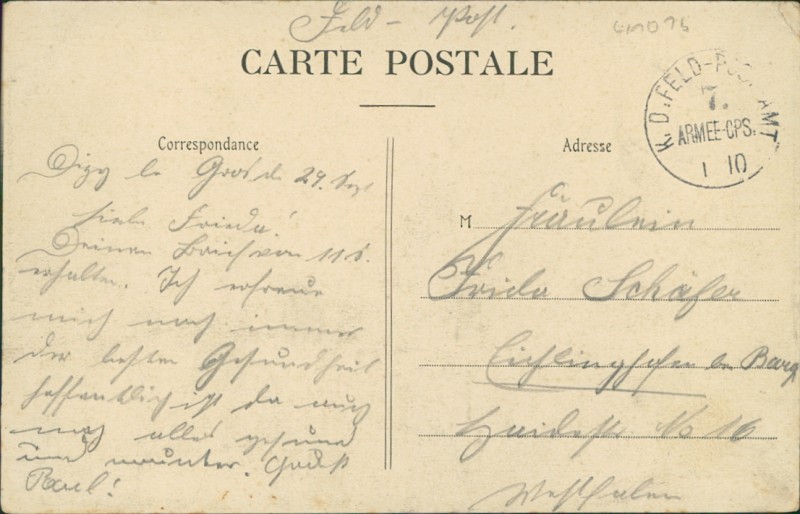 Feld-Post.
CARTE POSTALE
K. D. FELD-POSTAMT
7.
ARMEE-CPS.
1 10
Correspondance
Adresse
Dizy le Gros d. 29. Sept
Liebe Frieda!
Deinen Brief vom 11 d.
erhalten. Ich erfreue
mich noch immer
der besten Gesundheit
hoffentlich ist da auch
noch alles gesund
und munter. Gruß
Paul!
M Fräulein
Frida Schäfer
Eichlinghofen bei Barop
Haidestr No 16
Westfalen